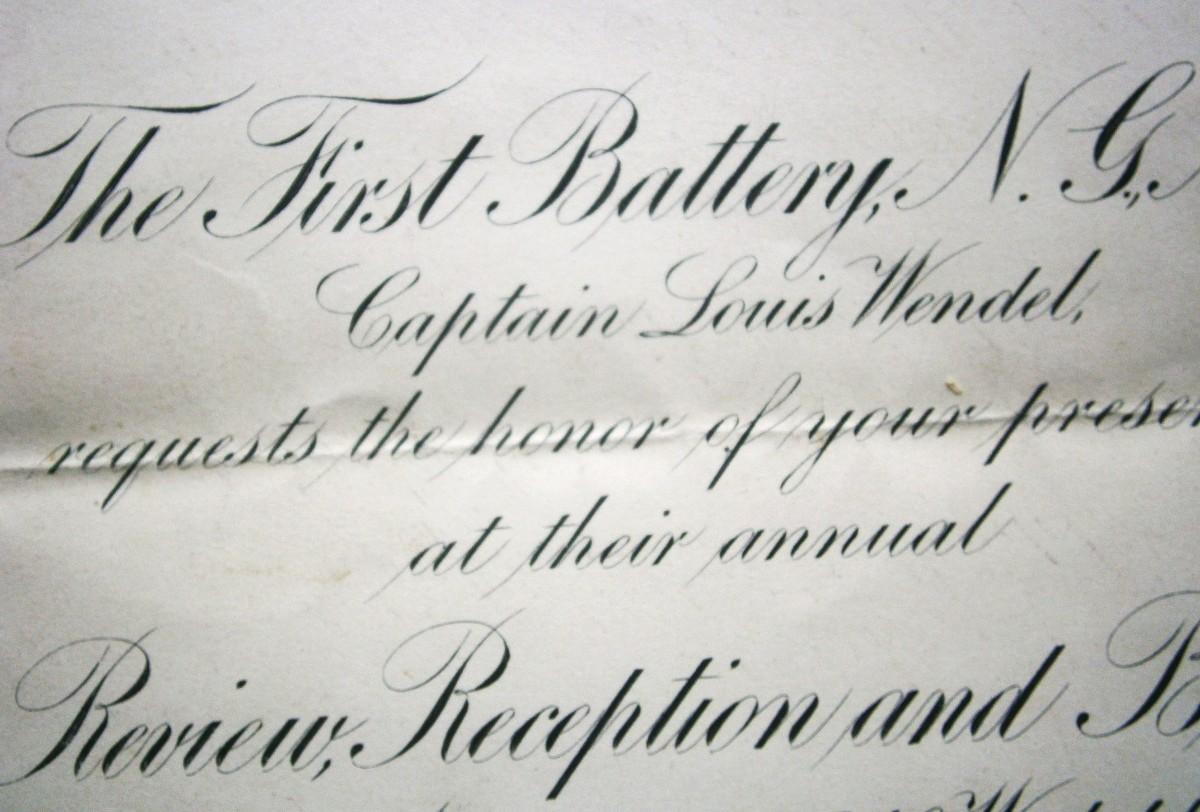 The First Battery, N. G.,
Captain Louis Wendel,
requests the honor of your
at their annual
Review, Reception and